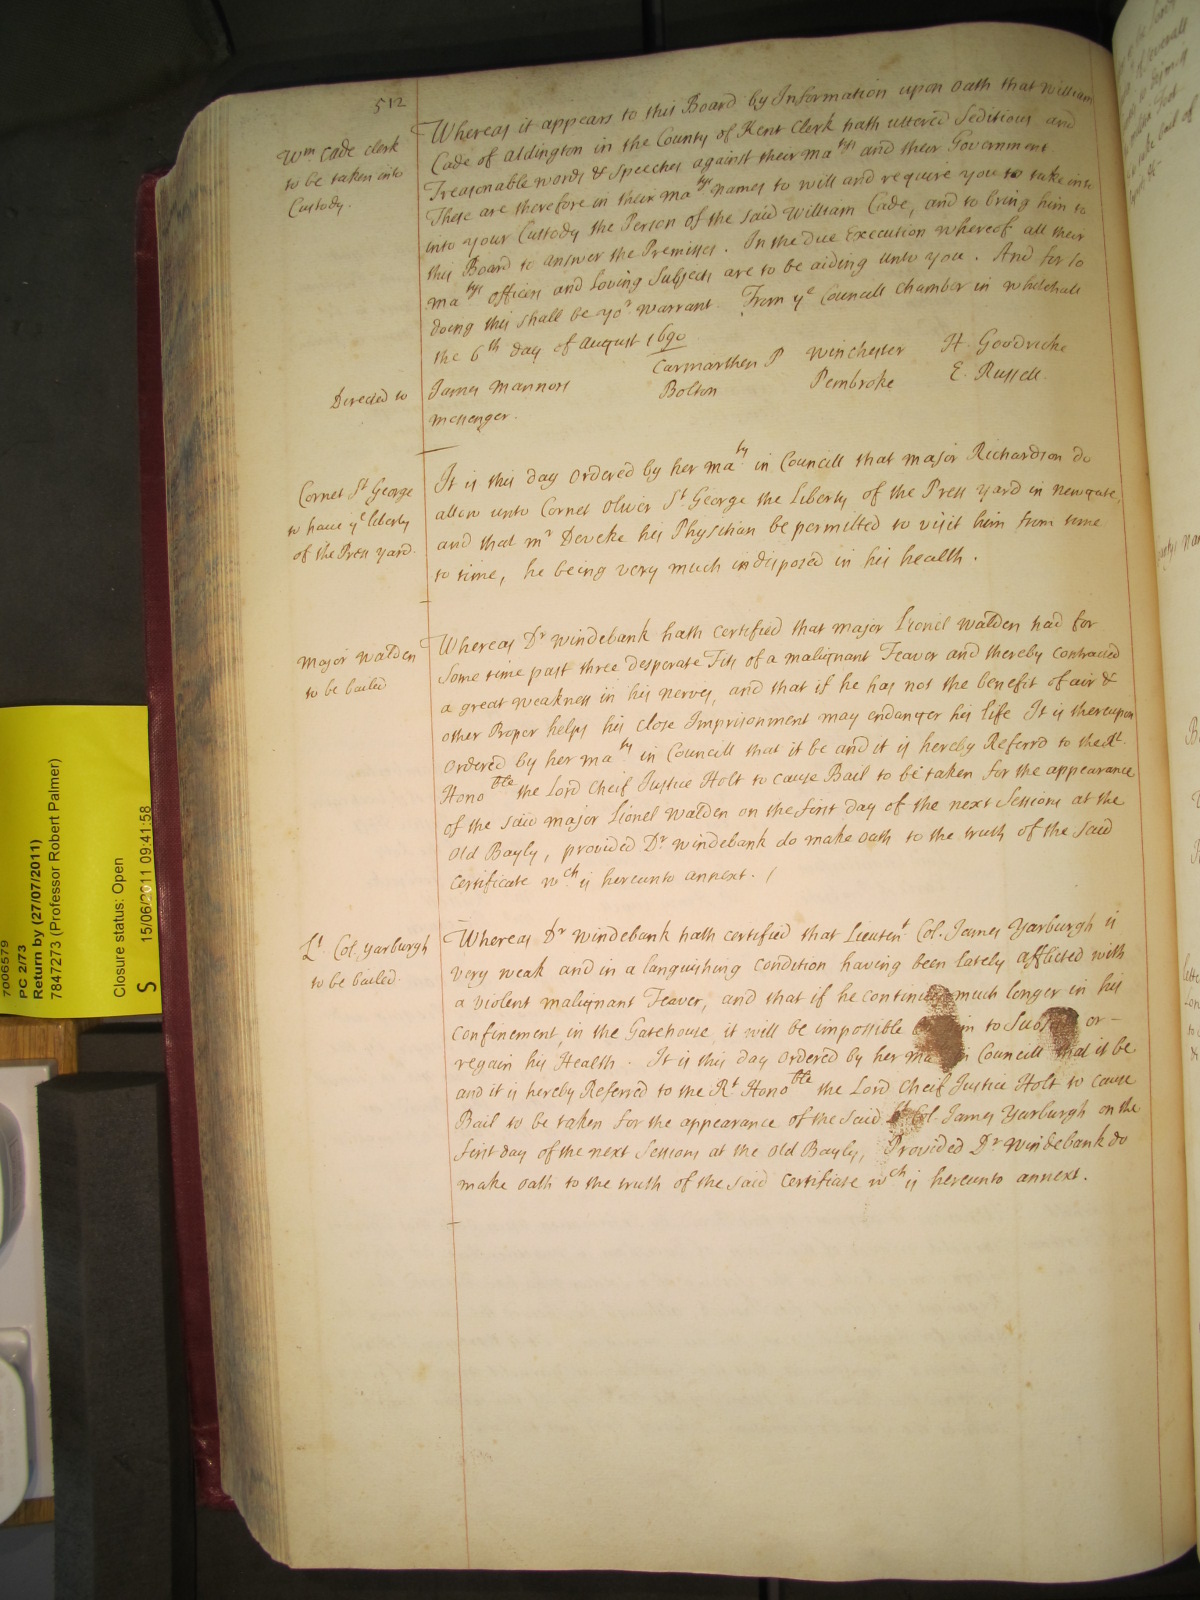 512
Wm Cade Clerk
to be taken into
Custody.
Whereas it appears to this Board by Information upon Oath that William
Cade of Aldington in the County of Kent Clerk hath uttered Seditious and
Treasonable words & Speeches against their matys and their Government
These are therefore in their matys names to will and require you to take into
into your Custody the Person of the said William Cade, and to bring him to
this Board to answer the Premisses. In the due Execution whereof all their
matys officers and Loving Subjects are to be aiding unto you. And for so
doing this shall be yor warrant From ye Councill Chamber in whitehall
the 6th day of August 1690
Carmarthen P Winchester H. Goodricke
Bolton Pembroke E. Russell.
Directed to
James Mannors
Messenger.
Cornet St George
to have ye liberty
of the Press yard.
It is this day Ordered by her maty in Councill that major Richardson do
allow unto Cornet Oliver St George the Liberty of the Press yard in newgate,
and that mr his Physitian be permitted to visit him from time
to time, he being very much indisposed in his health.
Major Walden
to be bailed
Whereas Dr Windebank hath certified that major Lionel Walden had for
Some time past three desperate Fits of a malignant Feaver and thereby contracted
a great weakness in his nerves, and that if he has not the benefit of air &
other Proper helps his Close Imprisonment may endanger his life It is thereupon
Ordered by her maty in Councill that it be and it is hereby Referrd to the Rt
Honoble the Lord Cheif Justice Holt to cause Bail to be taken for the appearance
of the said major Lionel Walden on the first day of the next Sessions at the
Old Bayly, provided Dr Windebank do make oath to the truth of the said
Certificate wch is hereunto annext.
Lt Col. Yarburgh
to be bailed.
Whereas Dr Windebank hath certified that Lieutent Col. James Yarburgh is
very weak and in a languishing Condition having been lately afflicted with
a violent malignant Feaver, and that if he continues much longer in his
Confinement in the Gatehouse it will be impossible in to or -
regain his Health. It is this day Ordered by her ma in Councill that it be
and it is hereby Referred to the Rt Honoble the Lord Cheif Justice Holt to cause
Bail to be taken for the appearance of the said Lt Col. James Yarburgh on the
first day of the next Sessions at the Old Bayly, Provided Dr Windebank do
make Oath to the truth of the said Certificate wch is hereunto annext.
7006579
PC 2/73
Return by (27/07/2011)
7847273 (Professor Robert Palmer)
Closure status: Open
S 15/06/2011 09:41:58